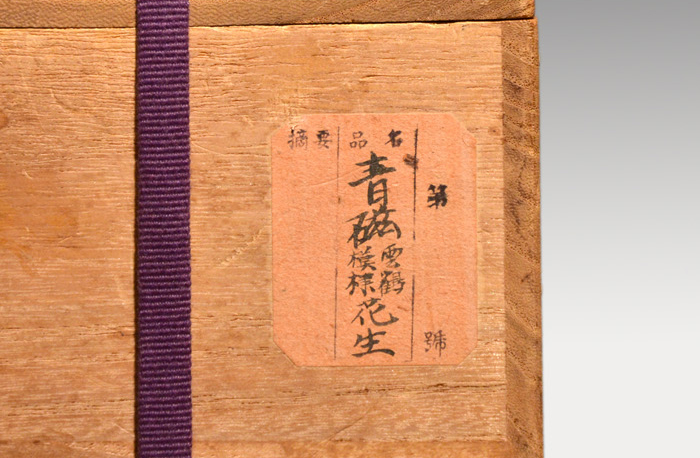 第 號
品名
青磁
雲鶴
模様
花生
摘要